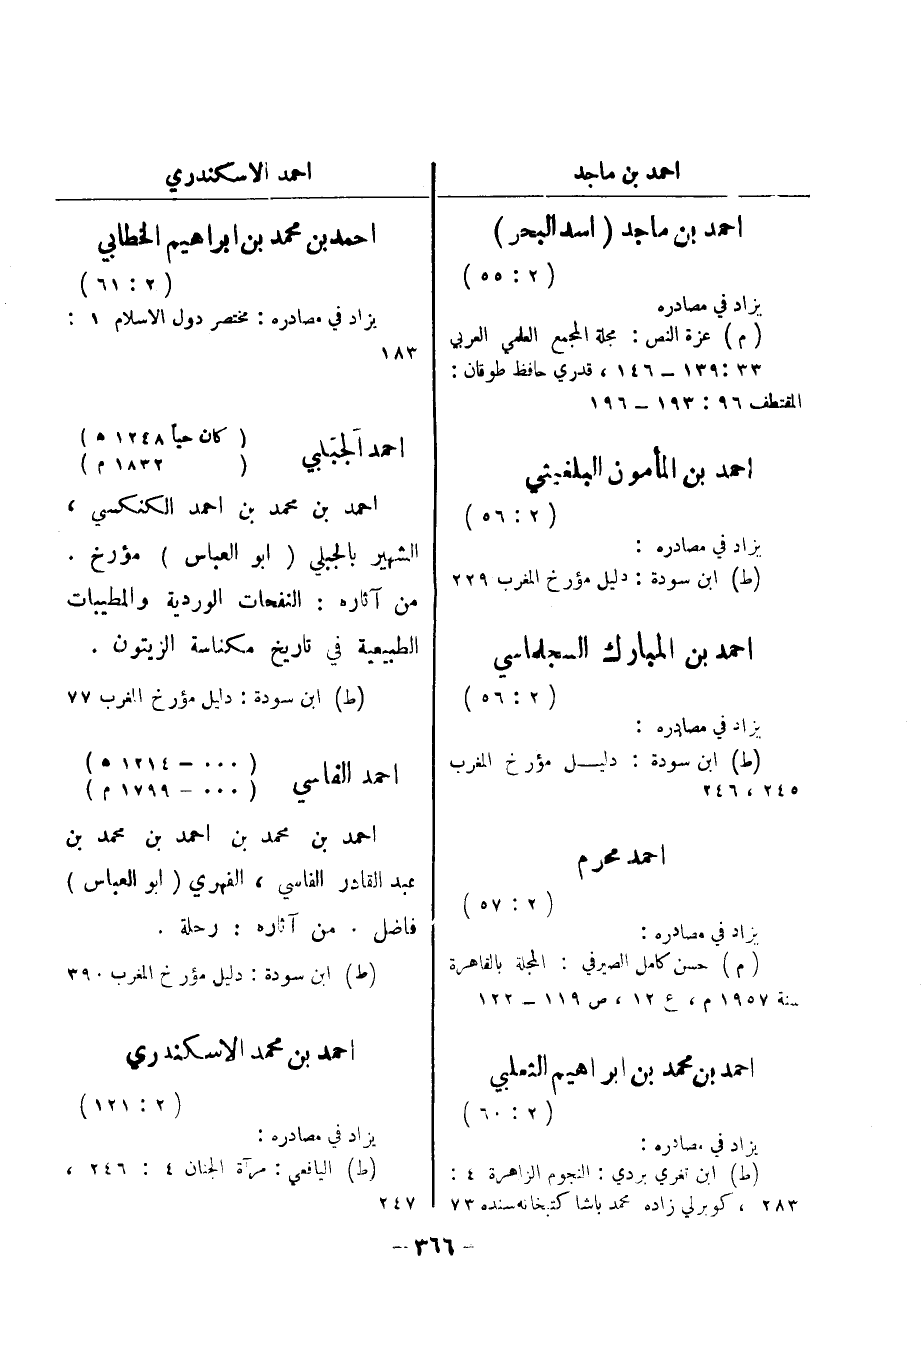 احمد بن ماجد
احمد بن ماجد ( اسد البحر )
( ٢ : ٥٥ )
يزاد في مصادره
( م ) عزة النص : مجلة المجمع العلمي العربي
٣٣ : ١٣٩ – ١٤٦ ، قدري حافظ طوقان :
المقتطف ٩٦ : ١٩٣ – ١٩٦
احمد بن المأمون البلغيثي
( ٢ : ٥٦ )
يزاد في مصادره :
(ط) ابن سودة : دليل مؤرخ المغرب ٢٢٩
احمد بن المبارك السجلماسي
( ٢ : ٥٦ )
يزاد في مصادره :
(ط) ابن سودة : دليل مؤرخ المغرب
٢٤٥ ، ٢٤٦
احمد محرم
( ٢ : ٥٧ )
يزاد في مصادره :
( م ) حسن كامل الصيرفي : المجلة بالقاهرة
سنة ١٩٥٧ م ، ع ١٢ ، ص ١١٩ – ١٢٢
احمد بن محمد بن ابراهيم الثعلبي
( ٢ : ٦٠ )
يزاد في مصادره :
(ط) ابن تغري بردي : النجوم الزاهرة ٤ :
٢٨٣ ، كوبرلي زاده محمد باشا كتبخانه سنده ٧٣
احمد الاسكندري
احمد بن محمد بن ابراهيم الخطابي
( ٢ : ٦١ )
يزاد في مصادره : مختصر دول الاسلام ١ :
١٨٣
احمد الجبلي ( كان حياً ١٢٤٨ ه )
( ١٨٣٢ م )
احمد بن محمد بن احمد الكنكسي ،
الشهير بالجبلي ( ابو العباس ) مؤرخ .
من آثاره : النفحات الوردية والمطيبات
الطبيعية في تاريخ مكناسة الزيتون .
(ط) ابن سودة : دليل مؤرخ المغرب ٧٧
احمد الفاسي ( ٠٠٠ – ١٢١٤ ه )
( ٠٠٠ – ١٧٩٩ م )
احمد بن محمد بن احمد بن محمد بن
عبد القادر الفاسي ، الفهري ( ابو العباس )
فاضل . من آثاره : رحلة .
(ط) ابن سودة : دليل مؤرخ المغرب ٣٩٠
احمد بن محمد الاسكندري
( ٢ : ١٢١ )
يزاد في مصادره :
(ط) اليافعي : مرآة الجنان ٤ : ٢٤٦ ،
٢٤٧
– ٣٦٦ –